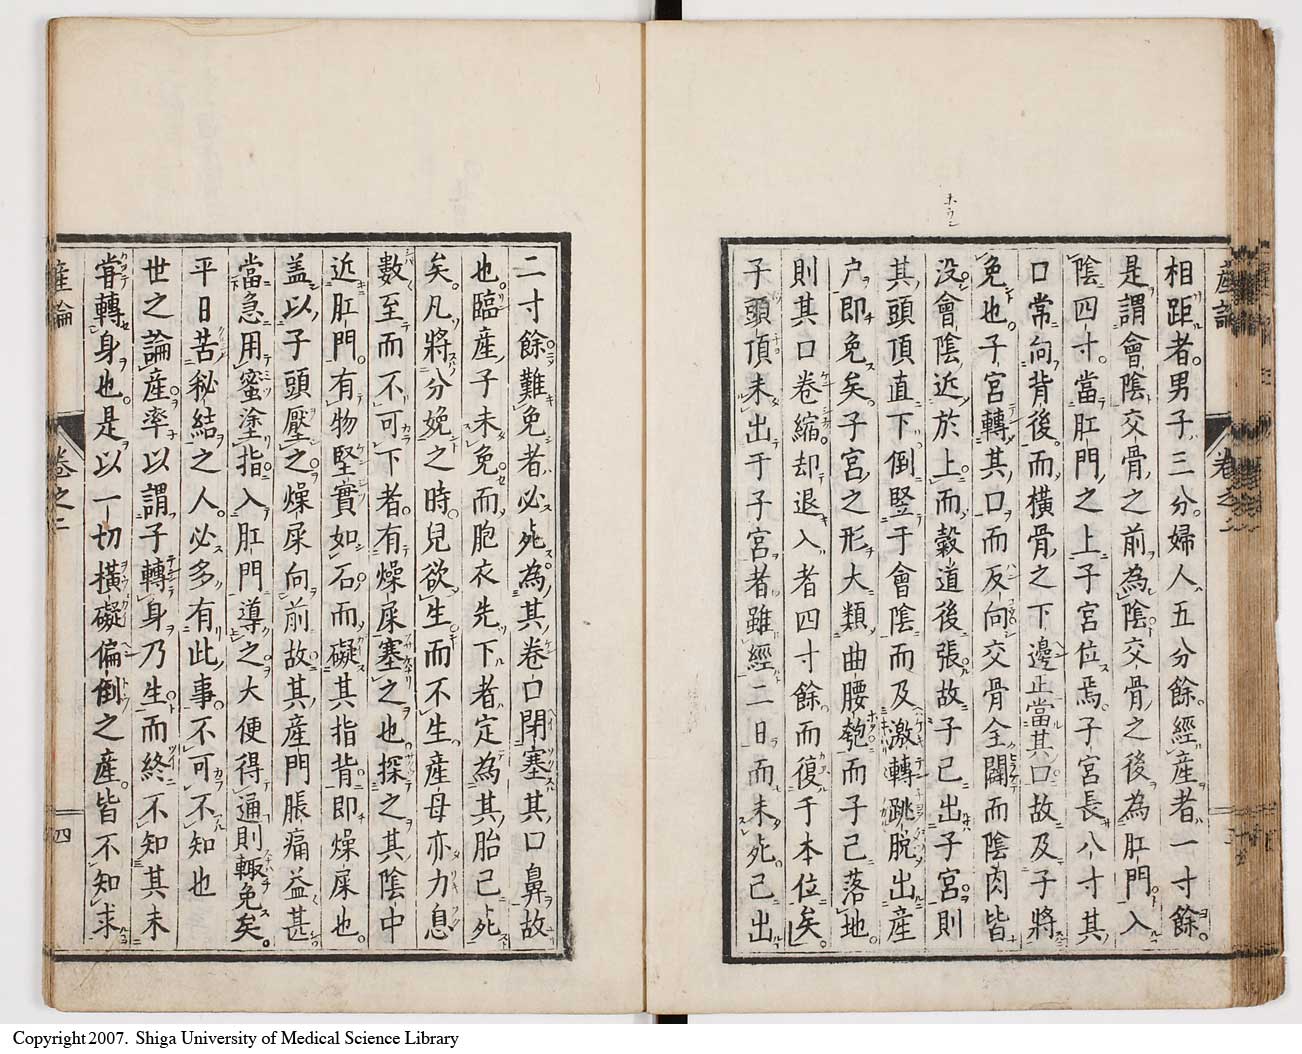 相距者男子三分婦人五分餘經產者一寸餘
是謂會陰交骨之前為陰交骨之後為肛門入
陰四寸當肛門之上子宮位焉子宮長八寸其
口常向背後而橫骨之下邊止當其口故及子將
免也子宮轉其口而反向交骨全闢而陰肉皆
没會陰近於上而穀道後張故子已出子宮則
其頭頂直下倒竪于會陰而及激轉跳脫出産
户即免矣子宮之形大類曲腰匏而子已落地
則其口卷縮却退入者四寸餘而復于本位矣
子頭頂未出于子宮者雖經二日而未死已出
產論
卷之二
二寸餘難免者必死為其卷口閉塞其口鼻故
也臨産子未免而胞衣先下者定為其胎已死
矣凡將分娩之時兒欲生而不生産母亦力息
數至而不可下者有燥屎塞之也探之其陰中
近肛門有物堅實如石而礙其指背即燥屎也
盖以子頭壓之燥屎向前故其産門脹痛益甚
當急用蜜塗指入肛門導之大便得通則輙免矣
平日苦秘結之人必多有此事不可不知也
世之論産率以謂子轉身乃生而終不知其未
甞轉身也是以一切橫礙偏倒之産皆不知求
產論
卷之二
四
Copyright 2007. Shiga University of Medical Science Library